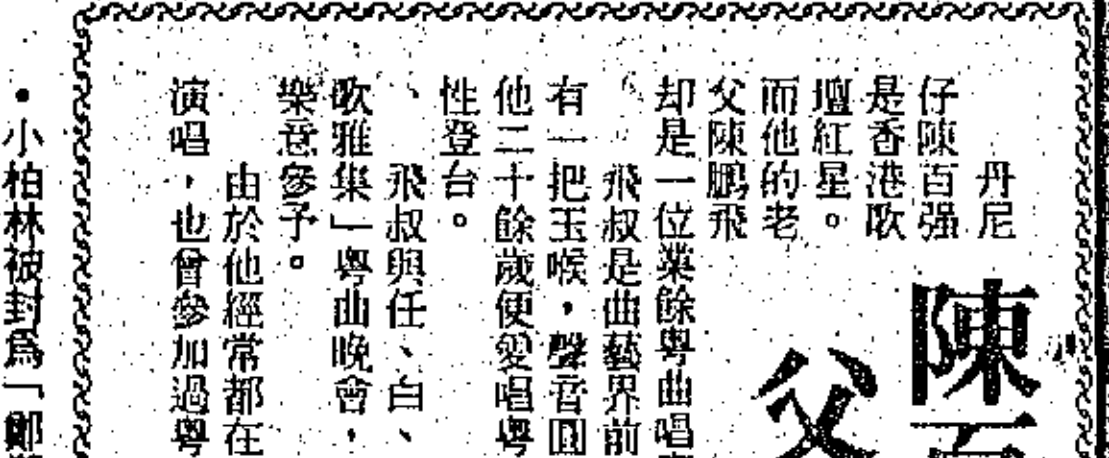 陳百
父
丹尼
仔陳百强
是香港歌
壇紅星。
而他的老
父陳鵬飛
却是一位業餘粵曲唱
飛叔是曲藝界前
有一把玉喉，聲音圓
他二十餘歲便愛唱粵
性登台。
飛叔與任、白、
歌雅集」粵曲晚會，
樂意參予。
由於他經常都在
演唱，也曾參加過粵
•小柏林被封爲「鄭